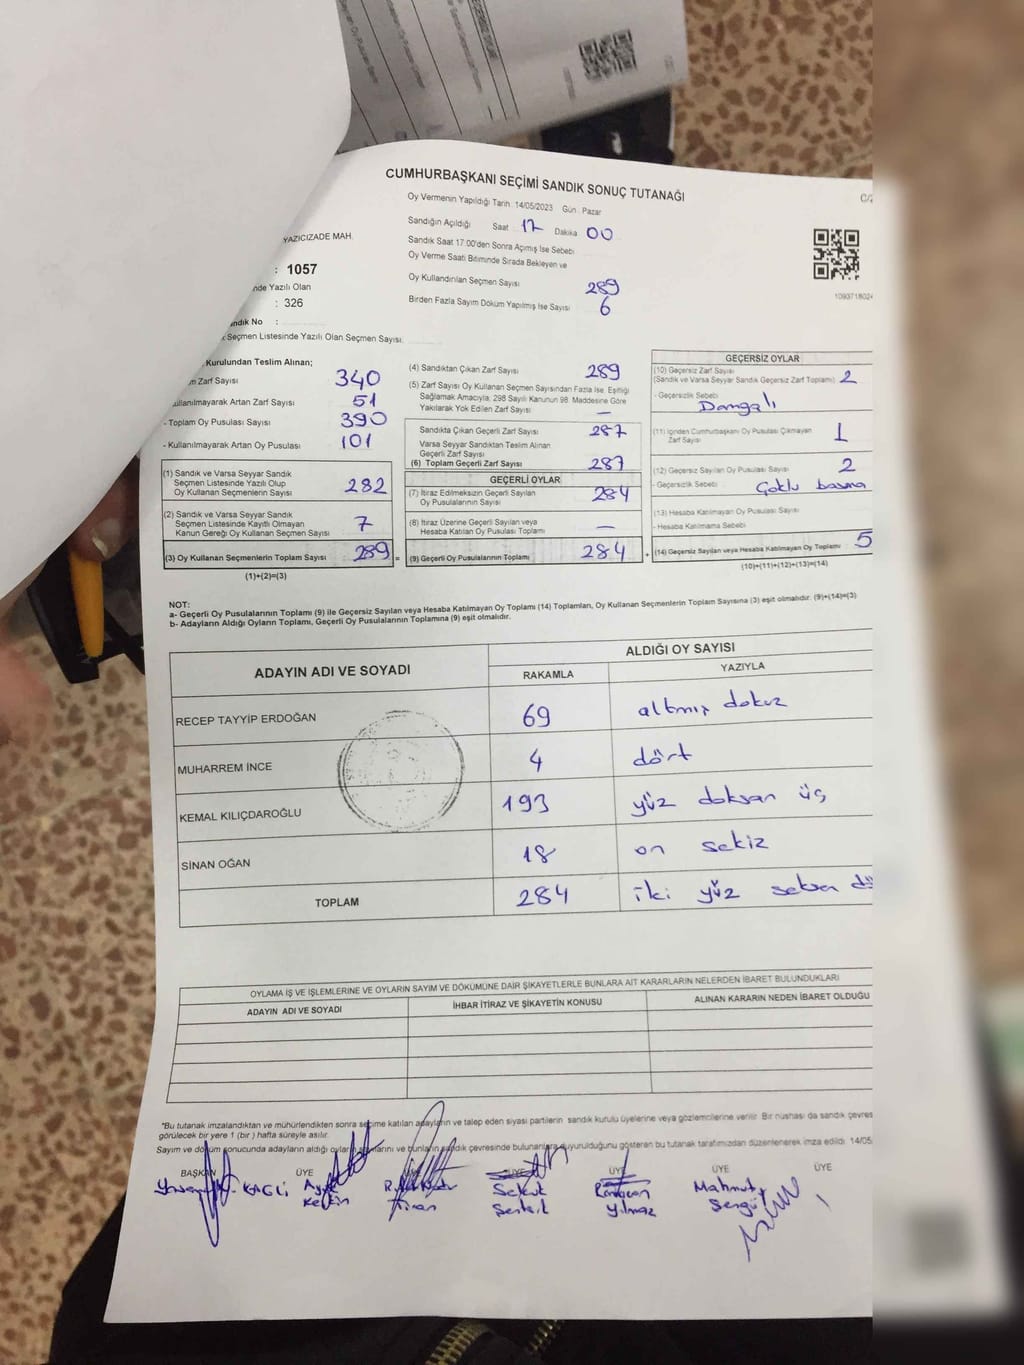 CUMHURBAŞKANI SEÇİMİ SANDIK SONUÇ TUTANAĞI
Oy Vermenin Yapıldığı Tarih : 14/05/2023 Gün : Pazar
Sandığın Açıldığı Saat 17 Dakika 00
Sandık Saat 17.00'den Sonra Açımış İse Sebebi
Oy Verme Saati Bitiminde Sırada Bekleyen ve
Oy Kullandırılan Seçmen Sayısı 289
Birden Fazla Sayım Döküm Yapılmış İse Sayısı 6
YAZICIZADE MAH.
: 1057
nde Yazılı Olan
: 326
ndık No :
Seçmen Listesinde Yazılı Olan Seçmen Sayısı:
Kurulundan Teslim Alınan;
m Zarf Sayısı 340
ullanılmayarak Artan Zarf Sayısı 51
- Toplam Oy Pusulası Sayısı 390
- Kullanılmayarak Artan Oy Pusulası 101
(1) Sandık ve Varsa Seyyar Sandık
Seçmen Listesinde Yazılı Olup
Oy Kullanan Seçmenlerin Sayısı 282
(2) Sandık ve Varsa Seyyar Sandık
Seçmen Listesinde Kayıtlı Olmayan
Kanun Gereği Oy Kullanan Seçmen Sayısı 7
(3) Oy Kullanan Seçmenlerin Toplam Sayısı 289 =
(1)+(2)=(3)
(4) Sandıktan Çıkan Zarf Sayısı 289
(5) Zarf Sayısı Oy Kullanan Seçmen Sayısından Fazla İse, Eşitliği
Sağlamak Amacıyla; 298 Sayılı Kanunun 98. Maddesine Göre
Yakılarak Yok Edilen Zarf Sayısı —
Sandıkta Çıkan Geçerli Zarf Sayısı 287
Varsa Seyyar Sandıktan Teslim Alınan
Geçerli Zarf Sayısı
(6) Toplam Geçerli Zarf Sayısı 287
GEÇERLİ OYLAR
(7) İtiraz Edilmeksizin Geçerli Sayılan
Oy Pusulalarının Sayısı 284
(8) İtiraz Üzerine Geçerli Sayılan veya
Hesaba Katılan Oy Pusulası Toplamı —
(9) Geçerli Oy Pusulalarının Toplamı 284 +
GEÇERSİZ OYLAR
(10) Geçersiz Zarf Sayısı
(Sandık ve Varsa Seyyar Sandık Geçersiz Zarf Toplamı) 2
- Geçersizlik Sebebi
Damgalı
(11) İçinden Cumhurbaşkanı Oy Pusulası Çıkmayan
Zarf Sayısı 1
(12) Geçersiz Sayılan Oy Pusulası Sayısı 2
- Geçersizlik Sebebi Çoklu basma
(13) Hesaba Katılmayan Oy Pusulası Sayısı
- Hesaba Katılmama Sebebi
(14) Geçersiz Sayılan veya Hesaba Katılmayan Oy Toplamı 5
(10)+(11)+(12)+(13)=(14)
NOT:
a- Geçerli Oy Pusulalarının Toplamı (9) ile Geçersiz Sayılan veya Hesaba Katılmayan Oy Toplamı (14) Toplamları, Oy Kullanan Seçmenlerin Toplam Sayısına (3) eşit olmalıdır. (9)+(14)=(3)
b- Adayların Aldığı Oyların Toplamı, Geçerli Oy Pusulalarının Toplamına (9) eşit olmalıdır.
ADAYIN ADI VE SOYADI
ALDIĞI OY SAYISI
RAKAMLA YAZIYLA
RECEP TAYYİP ERDOĞAN 69 altmış dokuz
MUHARREM İNCE 4 dört
KEMAL KILIÇDAROĞLU 193 yüz doksan üç
SİNAN OĞAN 18 on sekiz
TOPLAM 284 iki yüz seksen dö
OYLAMA İŞ VE İŞLEMLERİNE VE OYLARIN SAYIM VE DÖKÜMÜNE DAİR ŞİKAYETLERLE BUNLARA AİT KARARLARIN NELERDEN İBARET BULUNDUKLARI
ADAYIN ADI VE SOYADI İHBAR İTİRAZ VE ŞİKAYETİN KONUSU ALINAN KARARIN NEDEN İBARET OLDUĞU
*Bu tutanak imzalandıktan ve mühürlendikten sonra seçime katılan adayların ve talep eden siyasi partilerin sandık kurulu üyelerine veya gözlemcilerine verilir. Bir nüshası da sandık çevres
görülecek bir yere 1 (bir ) hafta süreyle asılır.
Sayım ve döküm sonucunda adayların aldığı oyların sayılarını ve bunların sandık çevresinde bulunanlara duyurulduğunu gösteren bu tutanak tarafımızdan düzenlenerek imza edildi. 14/05
BAŞKAN ÜYE ÜYE ÜYE ÜYE ÜYE
Ramazan Mahmut
Yılmaz Şengül